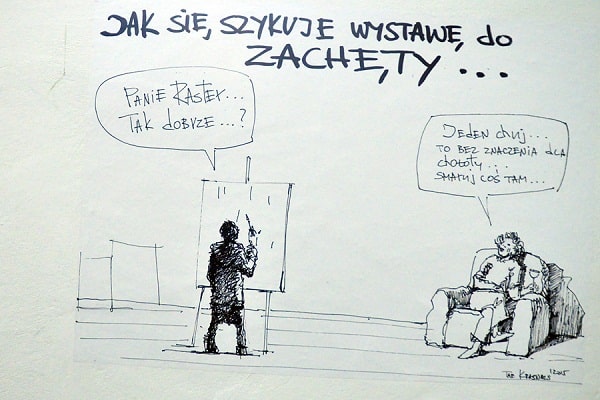 JAK SIĘ, SZYKUJE WYSTAWĘ, do
ZACHĘTY ...
PANIE RASTER...
TAK dobrze...?
JEDEN chuj...
TO BEZ ZNACZENIA dLA
chołoty...
SMARUJ COŚ TAM...
The Krasnals
'2015